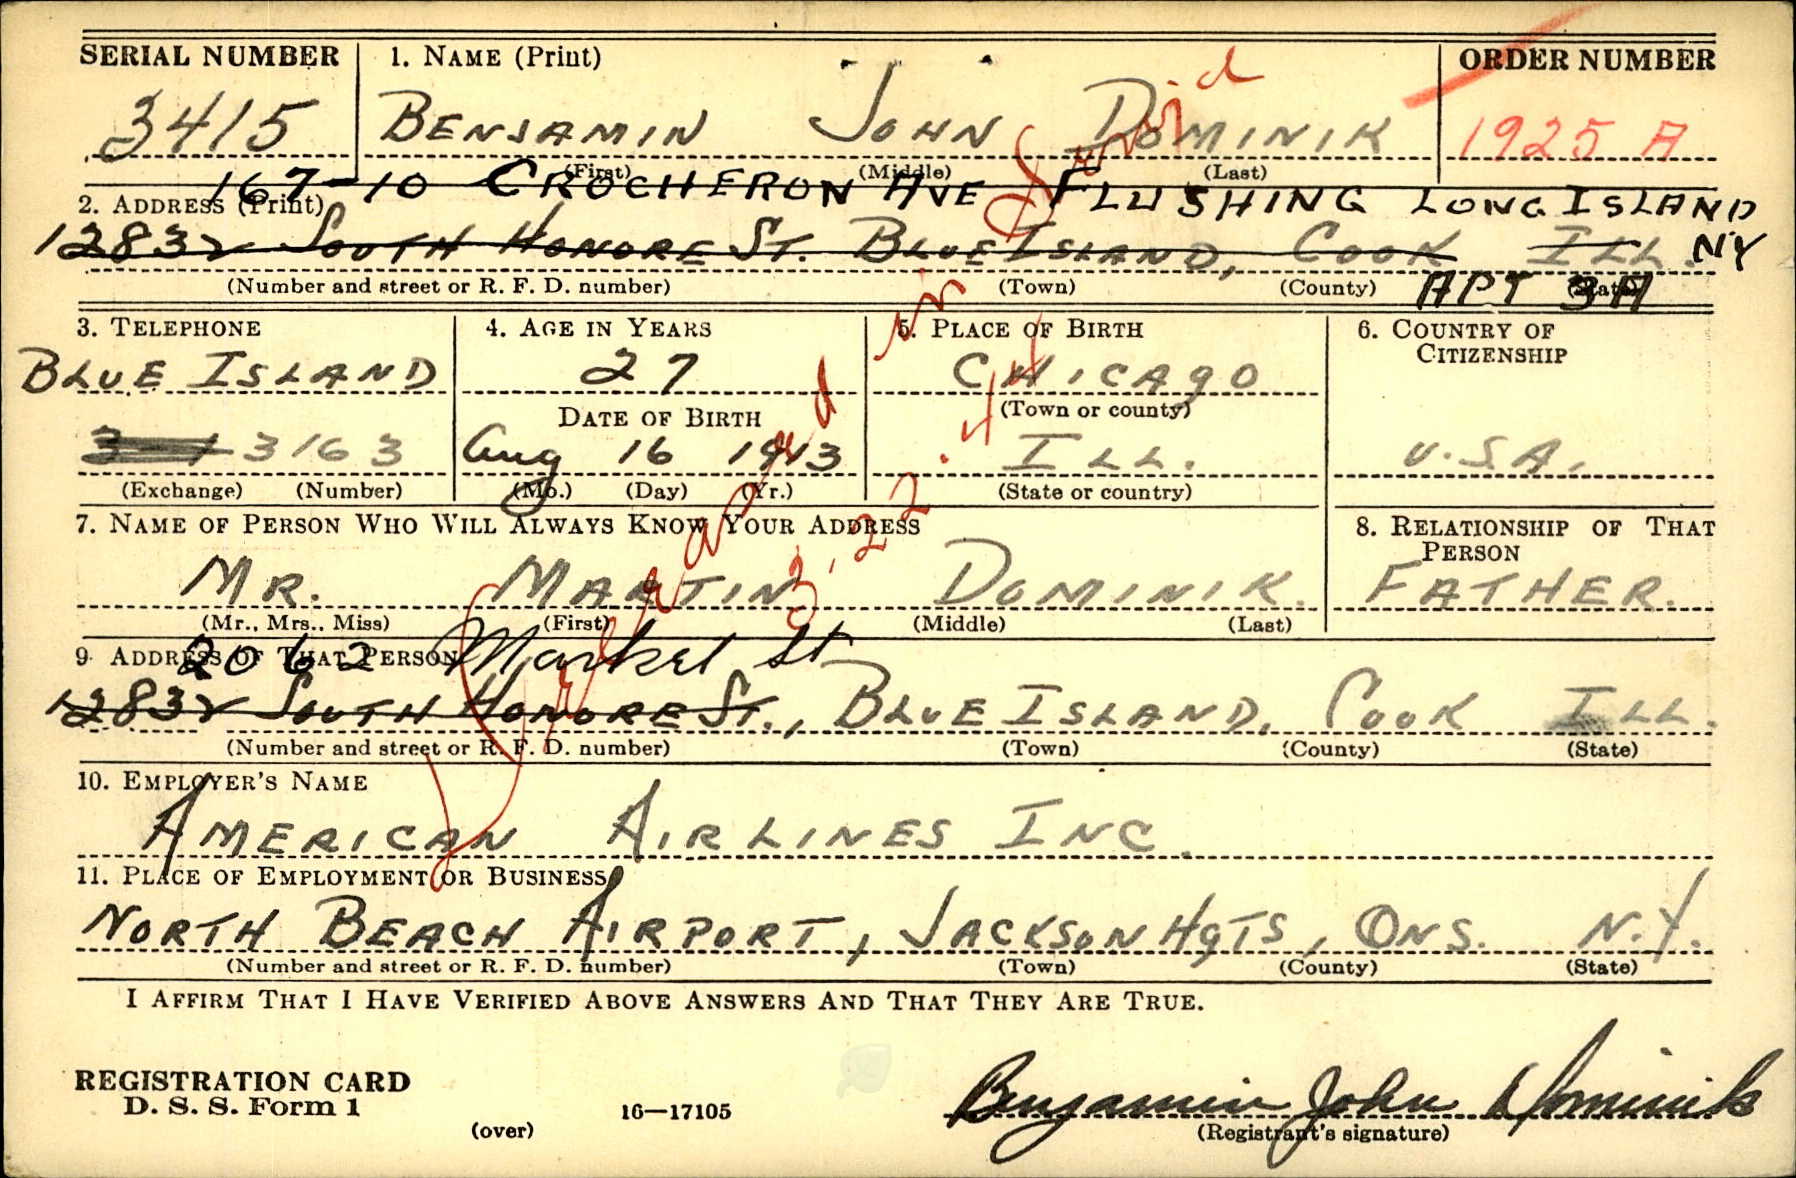 SERIAL NUMBER 1. NAME (Print) ORDER NUMBER
3415 BENJAMIN JOHN DOMINIK 1925 A
(First) (Middle) (Last)
167-10 CROCHERON AVE FLUSHING LONG ISLAND
2. ADDRESS (Print)
12832 SOUTH HONORE ST. BLUE ISLAND, COOK ILL. NY
(Number and street or R. F. D. number) (Town) (County) (State)
APT 3A
3. TELEPHONE 4. AGE IN YEARS 5. PLACE OF BIRTH 6. COUNTRY OF CITIZENSHIP
BLUE ISLAND 27 CHICAGO
DATE OF BIRTH (Town or county)
3163 Aug 16 1913 ILL. U.S.A.
(Exchange) (Number) (Mo.) (Day) (Yr.) (State or country)
7. NAME OF PERSON WHO WILL ALWAYS KNOW YOUR ADDRESS 8. RELATIONSHIP OF THAT PERSON
MR. MARTIN DOMINIK. FATHER.
(Mr., Mrs., Miss) (First) (Middle) (Last)
2062 Market St
9. ADDRESS OF THAT PERSON
12832 SOUTH HONORE ST., BLUE ISLAND, COOK ILL.
(Number and street or R. F. D. number) (Town) (County) (State)
10. EMPLOYER'S NAME
AMERICAN AIRLINES INC.
11. PLACE OF EMPLOYMENT OR BUSINESS
NORTH BEACH AIRPORT, JACKSON HGTS, QNS. N.Y.
(Number and street or R. F. D. number) (Town) (County) (State)
I AFFIRM THAT I HAVE VERIFIED ABOVE ANSWERS AND THAT THEY ARE TRUE.
REGISTRATION CARD
D. S. S. Form 1 16—17105 Benjamin John Dominik
(over) (Registrant's signature)
in
3.22.44